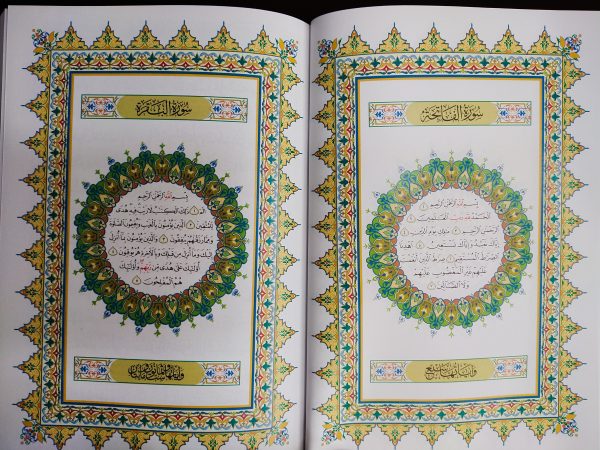 سورة الفاتحة
بسم الله الرحمن الرحيم ١
الحمد لله رب العلمين ٢
الرحمن الرحيم ٣ ملك يوم الدين ٤
إياك نعبد وإياك نستعين ٥ اهدنا
الصراط المستقيم ٦ صراط الذين أنعمت
عليهم غير المغضوب عليهم
ولا الضالين ٧
وآياتها سبع
سورة البقرة
بسم الله الرحمن الرحيم
الم ١ ذلك الكتب لا ريب فيه هدى
للمتقين ٢ الذين يؤمنون بالغيب ويقيمون الصلوة
ومما رزقنهم ينفقون ٣ والذين يؤمنون بما أنزل
إليك وما أنزل من قبلك وبالآخرة هم يوقنون ٤
أولئك على هدى من ربهم وأولئك
هم المفلحون ٥